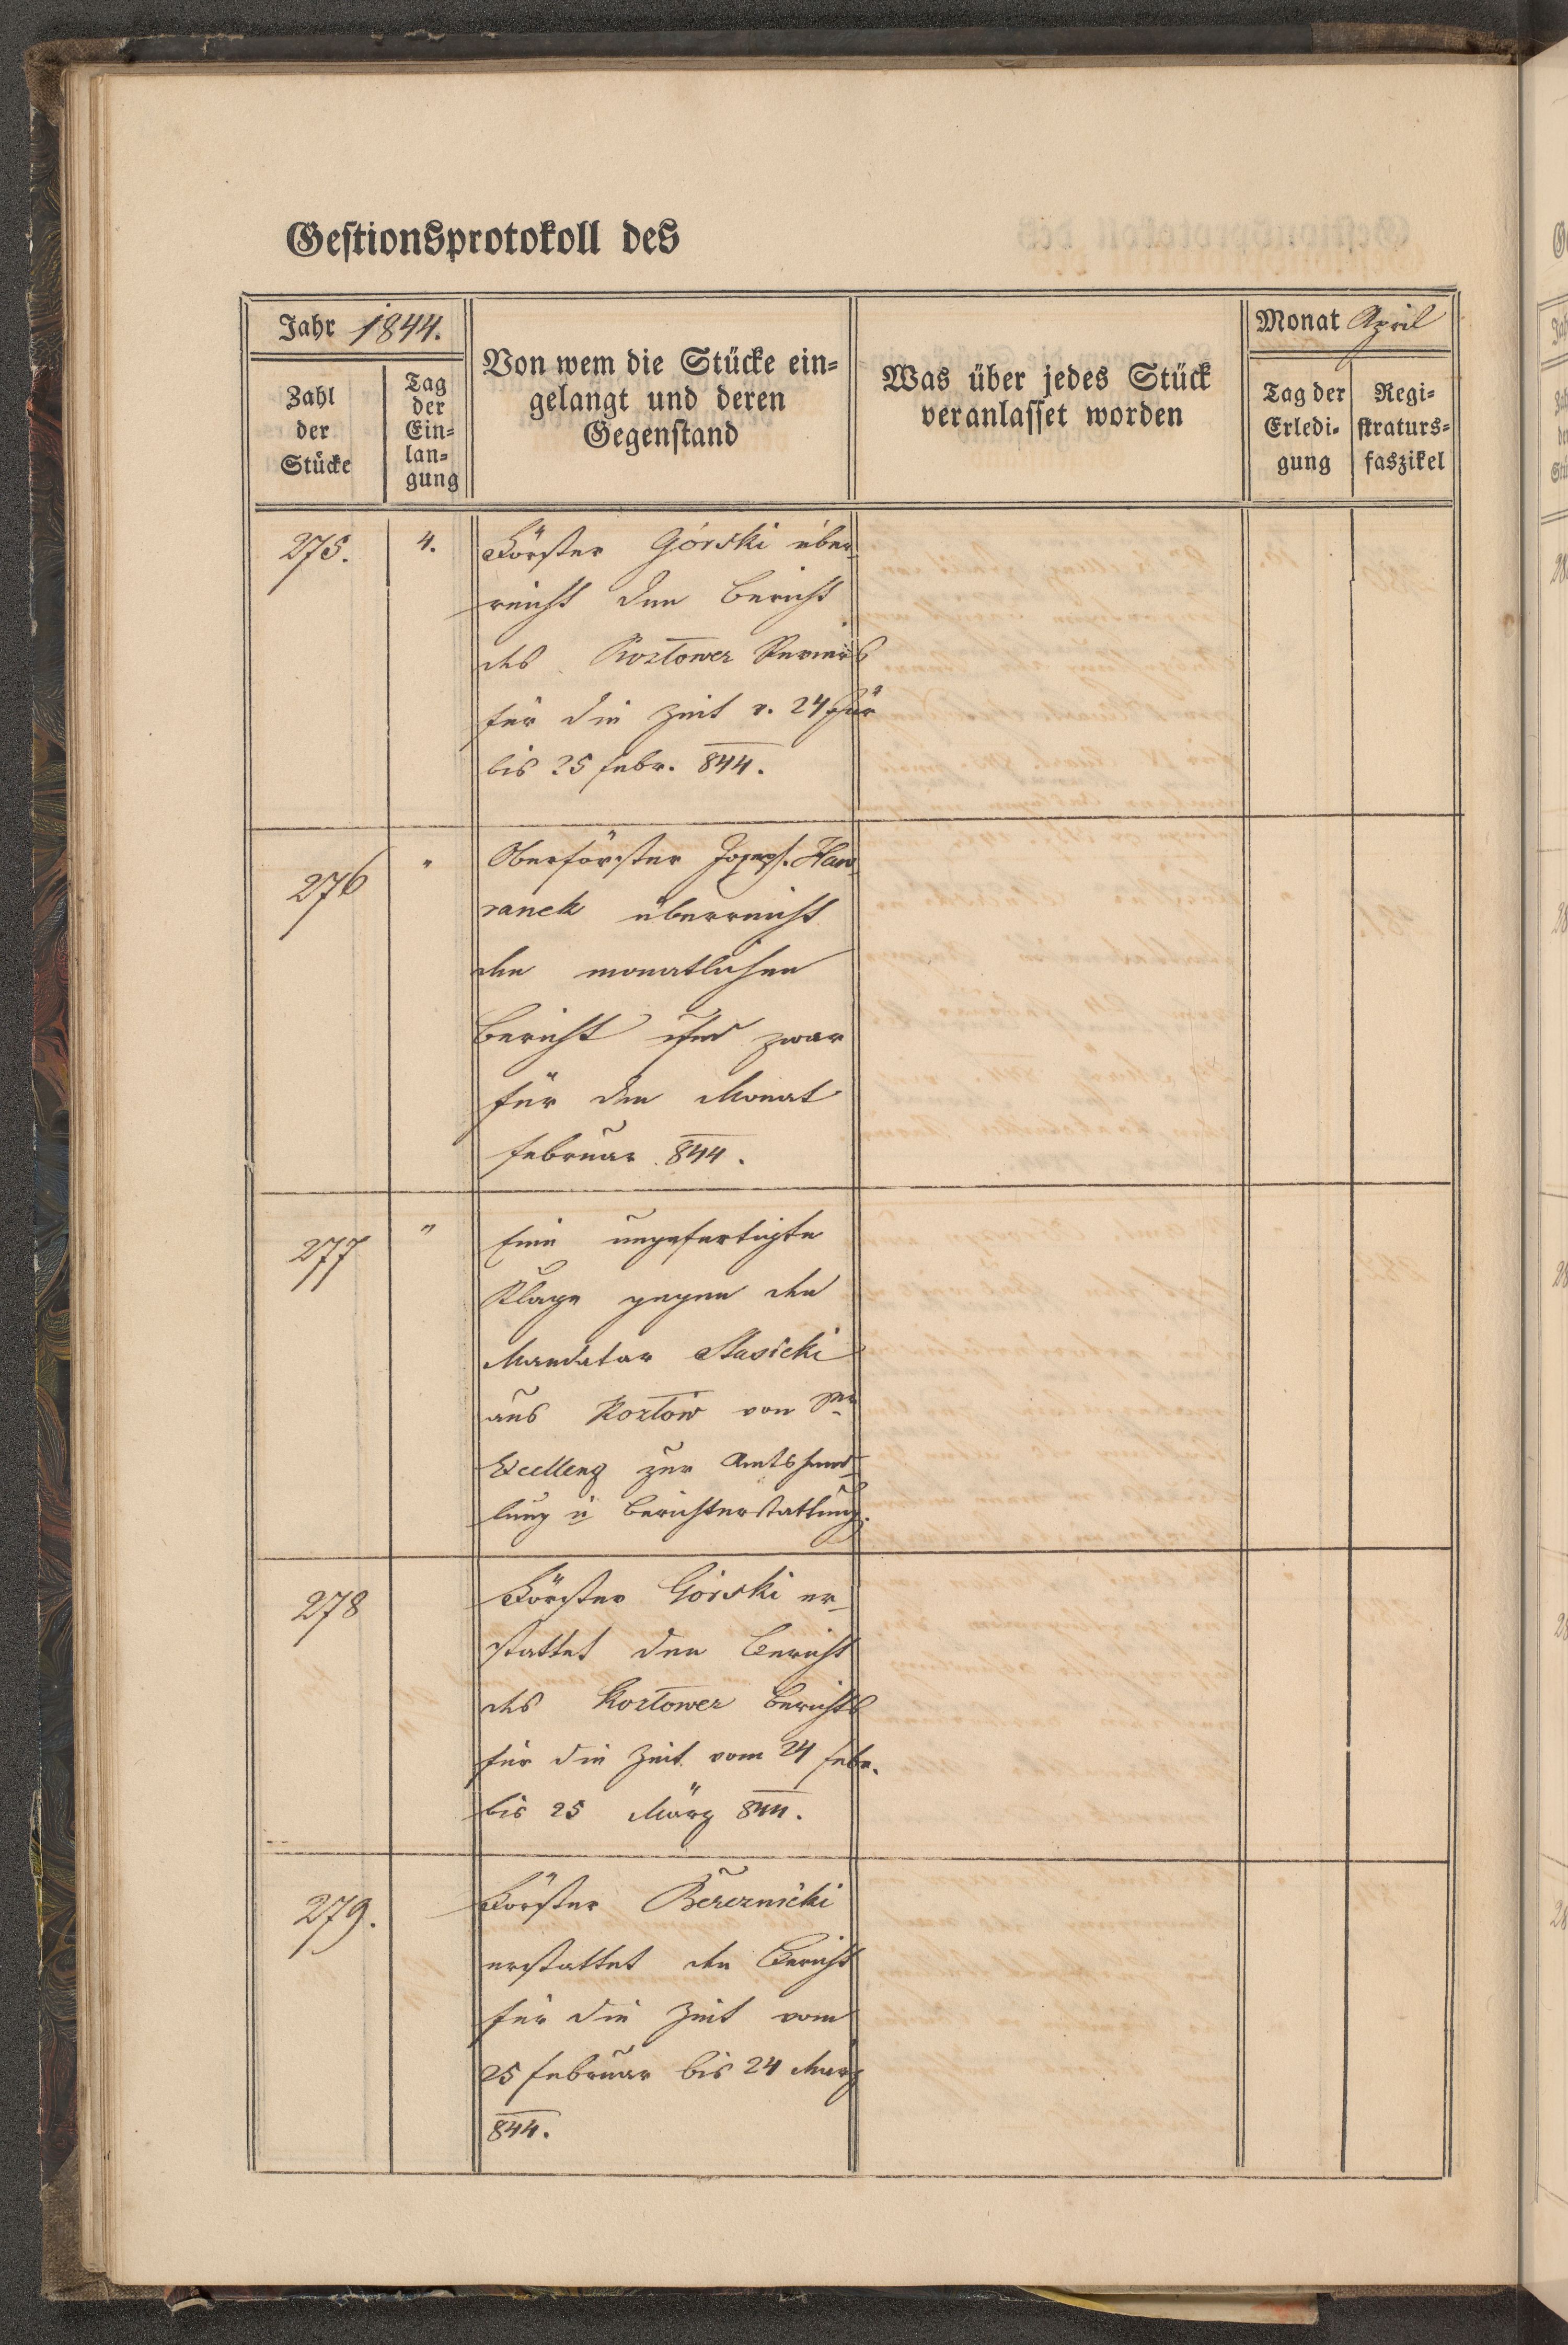 Gestionsprotokoll des
Jahr 1844.
Zahl
der
Stücke
Tag
der
Ein=
lan=
gung
Von wem die Stücke ein=
gelangt und deren
Gegenstand
Was über jedes Stück
veranlasset worden
Monat April
Tag der
Erledi=
gung
Regi=
straturs=
faszikel
275.
4.
Förster Górski über
reicht den Bericht
des Kozłower Reviers
für die Zeit v. 24 Jän
bis 25 Febr. 844.
276
"
Oberförster Joseph Haw
ranek überreicht
den monatlichen
Bericht und zwar
für den Monat
Februar 844.
277
"
Eine ungefertigte
Klage gegen den
Mandatar Stasicki
aus Kozłow von Sr
Excellenz zur Amtshand
lung u Berichterstattung.
278
Förster Górski er
stattet den Bericht
des Kozłower Berichts
für die Zeit vom 24 Febr.
bis 25 März 844.
279.
Förster Bereznicki
erstattet den Bericht
für die Zeit vom
25 Februar bis 24 März
844.